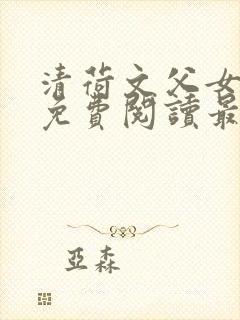 清荷文父女
免費閱讀最
亞森